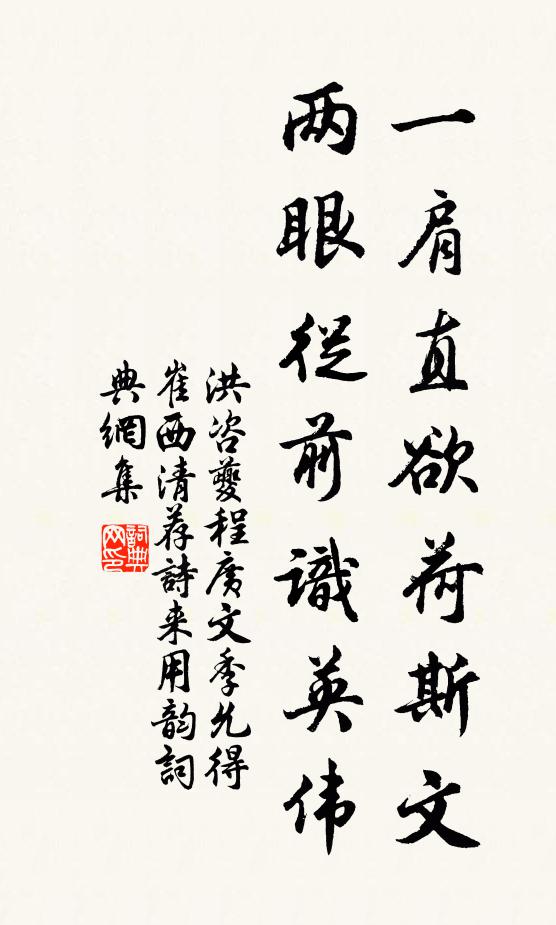 一肩直欲荷斯文
两眼従前識英伟
洪咨夔程广文季允得
崔西清荐詩来用韵詞
典網集
詞典网印